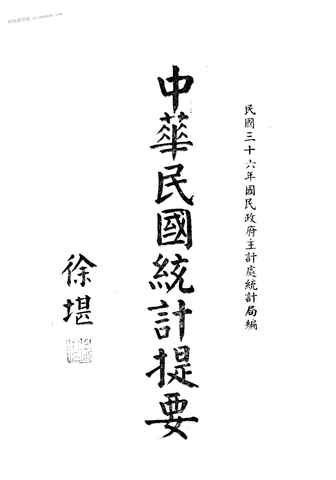 民國三十六年國民政府主計處統計局編
中華民國統計提要
徐堪